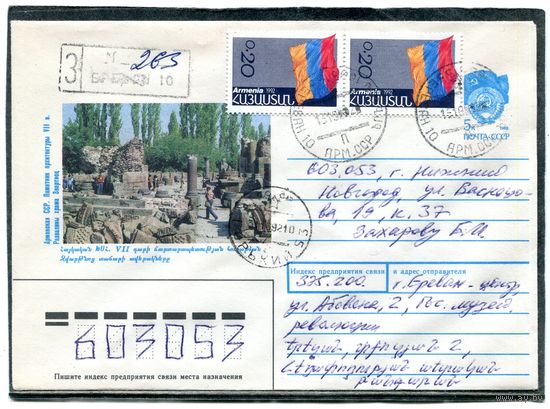 З
263
10
0.20
Armenia 1992
ՀԱՅԱՍՏԱՆ
0.20
Armenia 1992
ՀԱՅԱՍՏԱՆ
5к
ПОЧТА СССР
АРМ. ССР
АРМ. ССР
Армянская ССР. Памятник архитектуры VII в.
Развалины храма Звартноц
Հայկական ՍՍՀ. VII դարի ճարտարապետության հուշարձան
Զվարթնոց տաճարի ավերակները
603.053, г. Нижний
Новгород, ул. Васнецо-
ва, 19, к. 37
Захарову Б. И.
Индекс предприятия связи и адрес отправителя
375.200. г. Ереван-центр
ул. Абовяна, 2, Гос. музей
революции
Երևան, Աբովյան 2,
603053
Пишите индекс предприятия связи места назначения